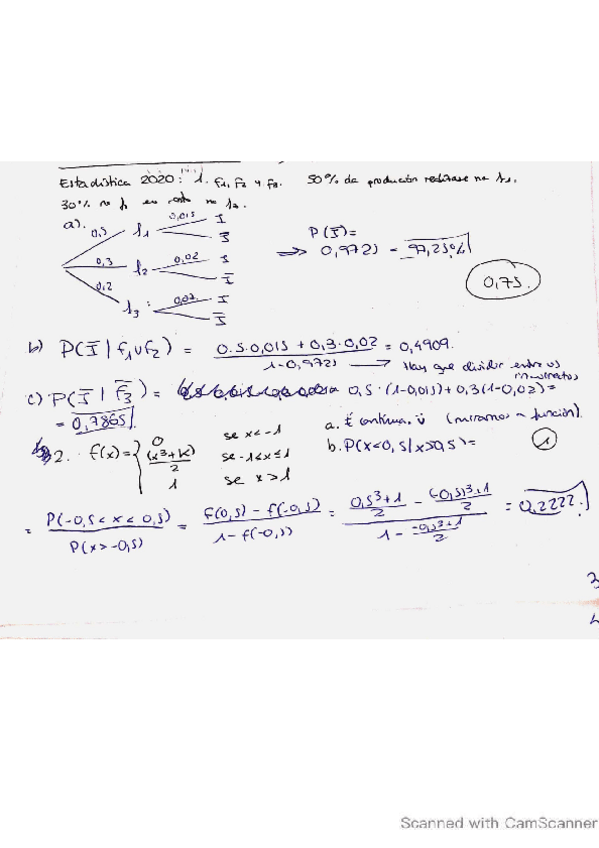 Estadística 2020: 1. f1, f2 y f3. 50% da producción realízase na f1.
30% na f2 eu resto na f3.
a).
0,5 f1 0,015 I
Ī
0,3 f2 0,02 I
Ī
0,2 f3 I
Ī
P(Ī)=
=> 0,9725 = 97,25%
0,75.
b) P(I | f1 ∪ f2) = (0.5·0,015 + 0,3·0,02)/(1-0,9725) = 0,4909.
→ Hay que dividir entre os
c) P(Ī | f̄3) = 0,5·(1-0,015)+0,3(1-0,02)=
= 0,7865
2. f(x)= { 0 se x<-1
(x³+k)/2 se -1≤x≤1
1 se x>1
a. É continua. (miramos a función).
b. P(x<0,5/x>0,5)= 1
= P(-0,5<x<0,5)/P(x>-0,5) = (f(0,5) - f(-0,5))/(1-f(-0,5)) = ((0,5³+1)/2 - ((-0,5)³+1)/2)/(1 - (-0,5³+1)/2) = 0,2222.
3
Scanned with CamScanner